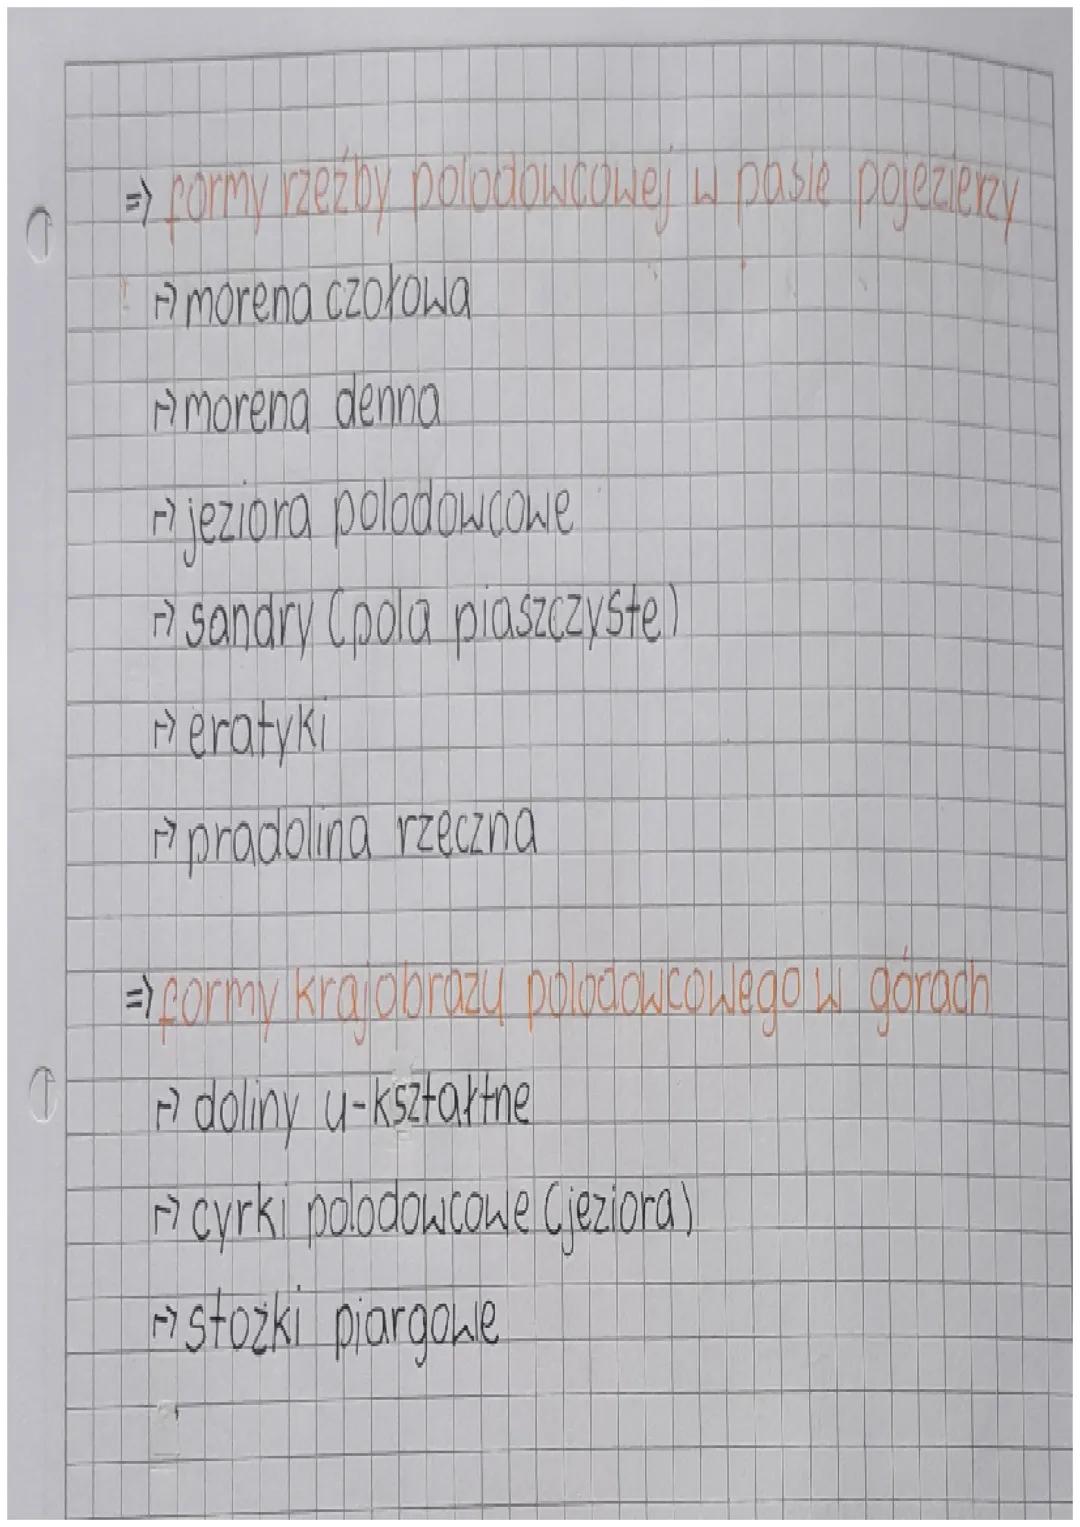 => formy rzeźby polodowcowej w pasie pojezierzy
↦ morena czołowa
↦ morena denna
↦ jeziora polodowcowe
↦ sandry (pola piaszczyste)
↦ eratyki
↦ pradolina rzeczna
=> formy krajobrazu polodowcowego w górach
↦ doliny u-kształtne
↦ cyrki polodowcowe (jeziora)
↦ stożki piargowe